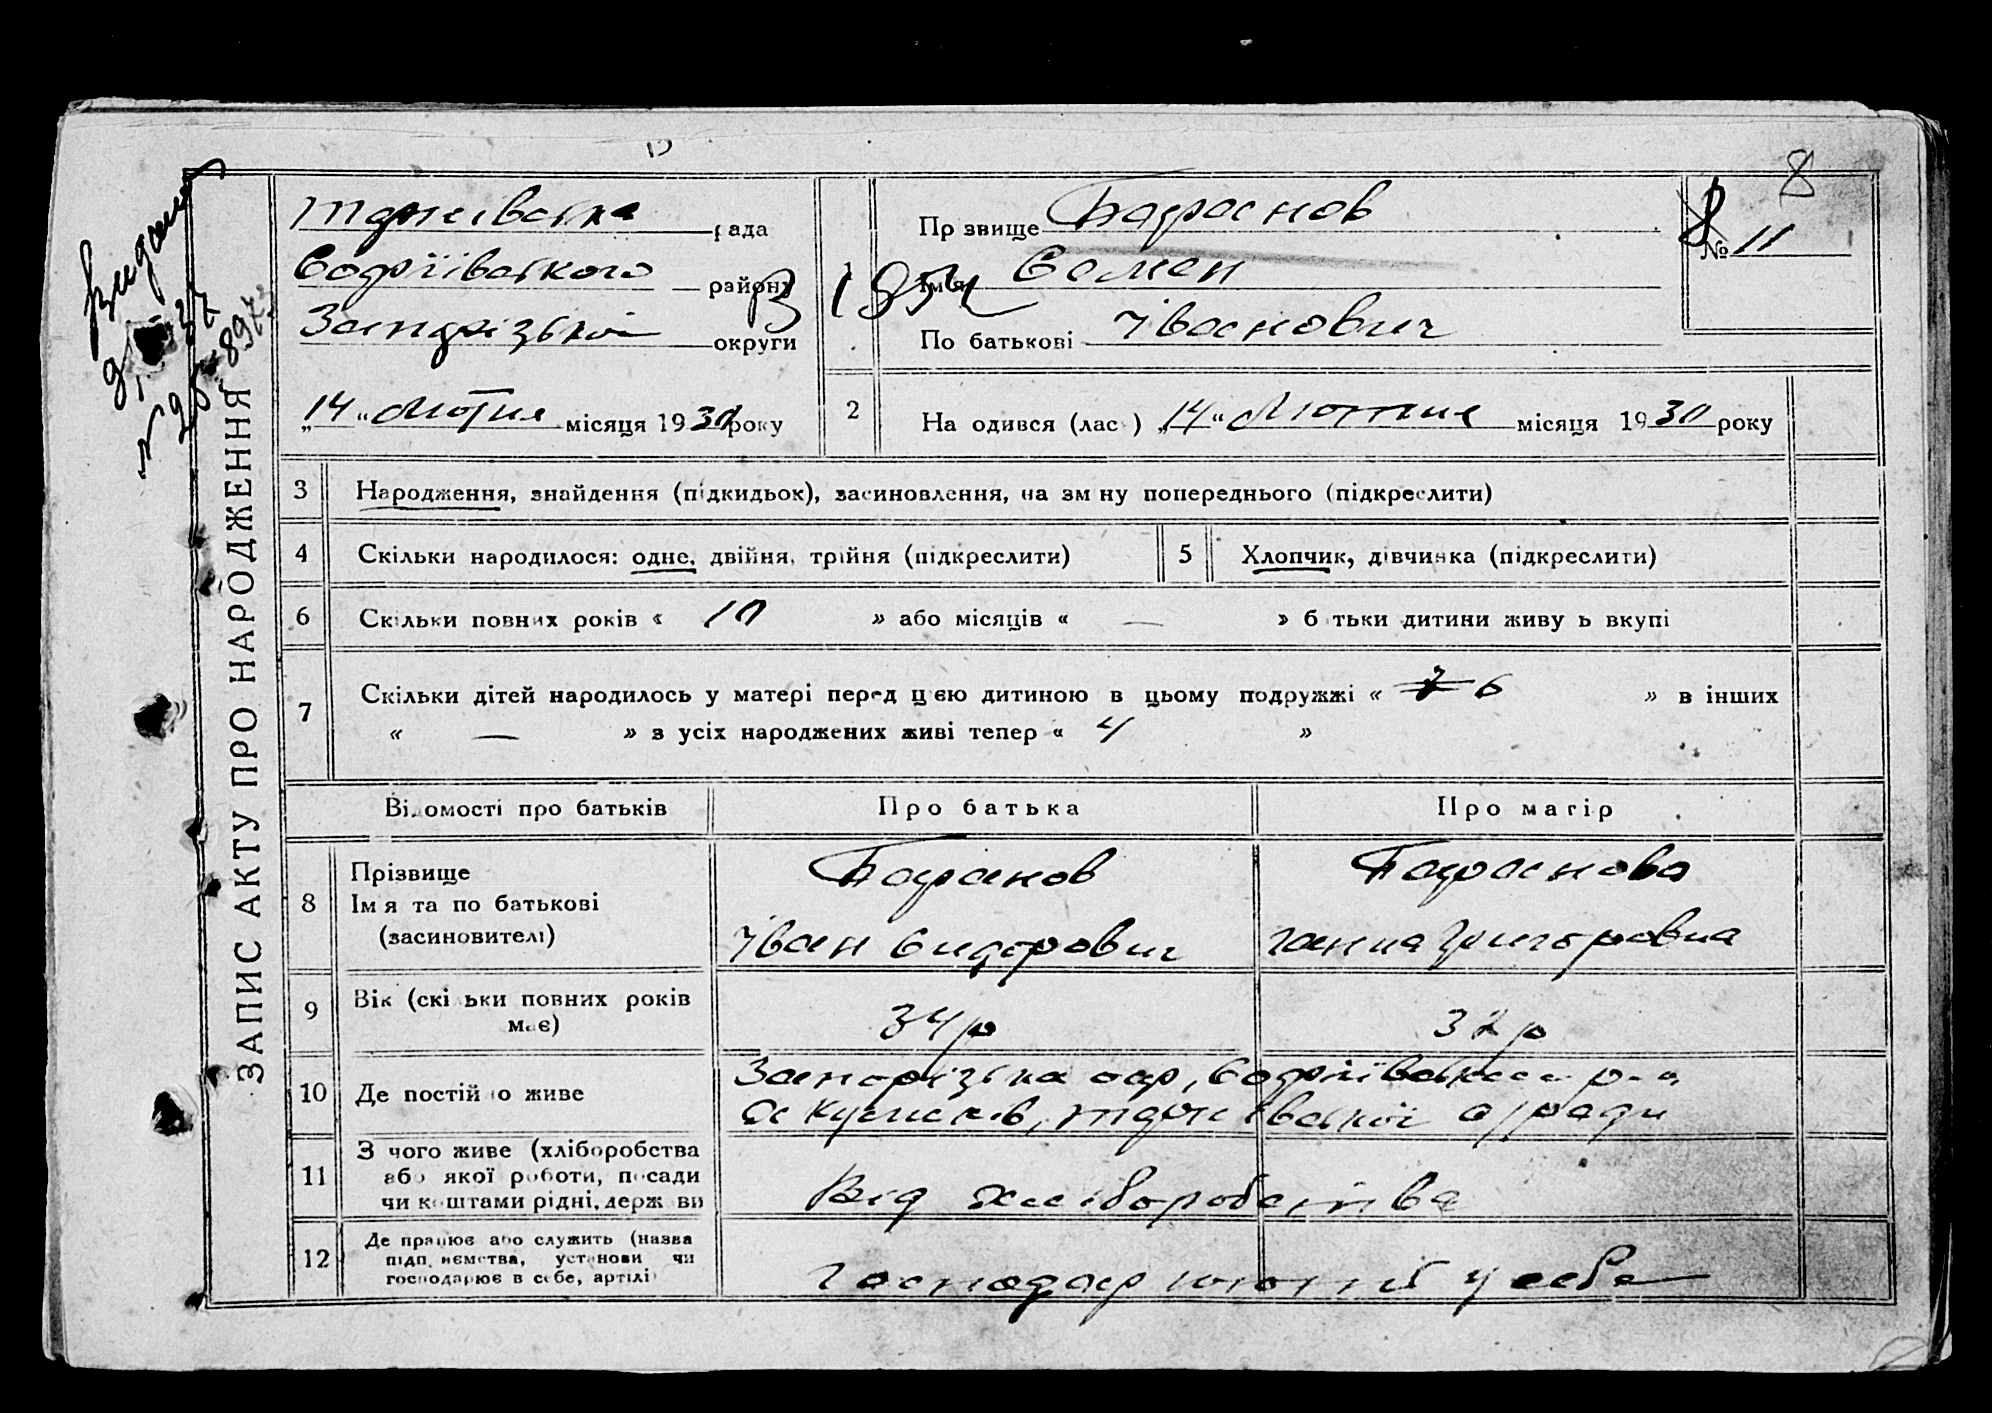 8
рада
Софіївського району
В 1954
Запорізької округи
„14“ Лютня місяця 1930 року
Прзвище Баранов
Імя Семен
По батькові Іванович
№ 11
2 На одився (лас ) „14“ Лютня місяця 1930 року
ЗАПИС АКТУ ПРО НАРОДЖЕННЯ
3 Народження, знайдення (підкидьок), засиновлення, на зм ну попереднього (підкреслити)
4 Скільки народилося: одне, двійня, трійня (підкреслити)
5 Хлопчик, дівчинка (підкреслити)
6 Скільки повних років « 10 » або місяців « — » б тьки дитини живу ь вкупі
7 Скільки дітей народилось у матері перед цією дитиною в цьому подружжі « 6 » в інших
« — » з усіх народжених живі тепер « 4 »
Відомості про батьків Про батька Про матір
8 Прізвище
Імя та по батькові
(засиновителі)
Баранов
Іван Сидорович
Баранова
Ганна Григоровна
9 Вік (скільки повних років
має)
34 р
32 р
10 Де постійно живе
Запорізька окр, Софіївського р-н
11 З чого живе (хліборобства
або якої роботи, посади
чи коштами рідні, держ ви
Від хліборобства
12 Де працює або служить (назва
підп иємства, установи чи
господарює в себе, артілі)
господар у себе